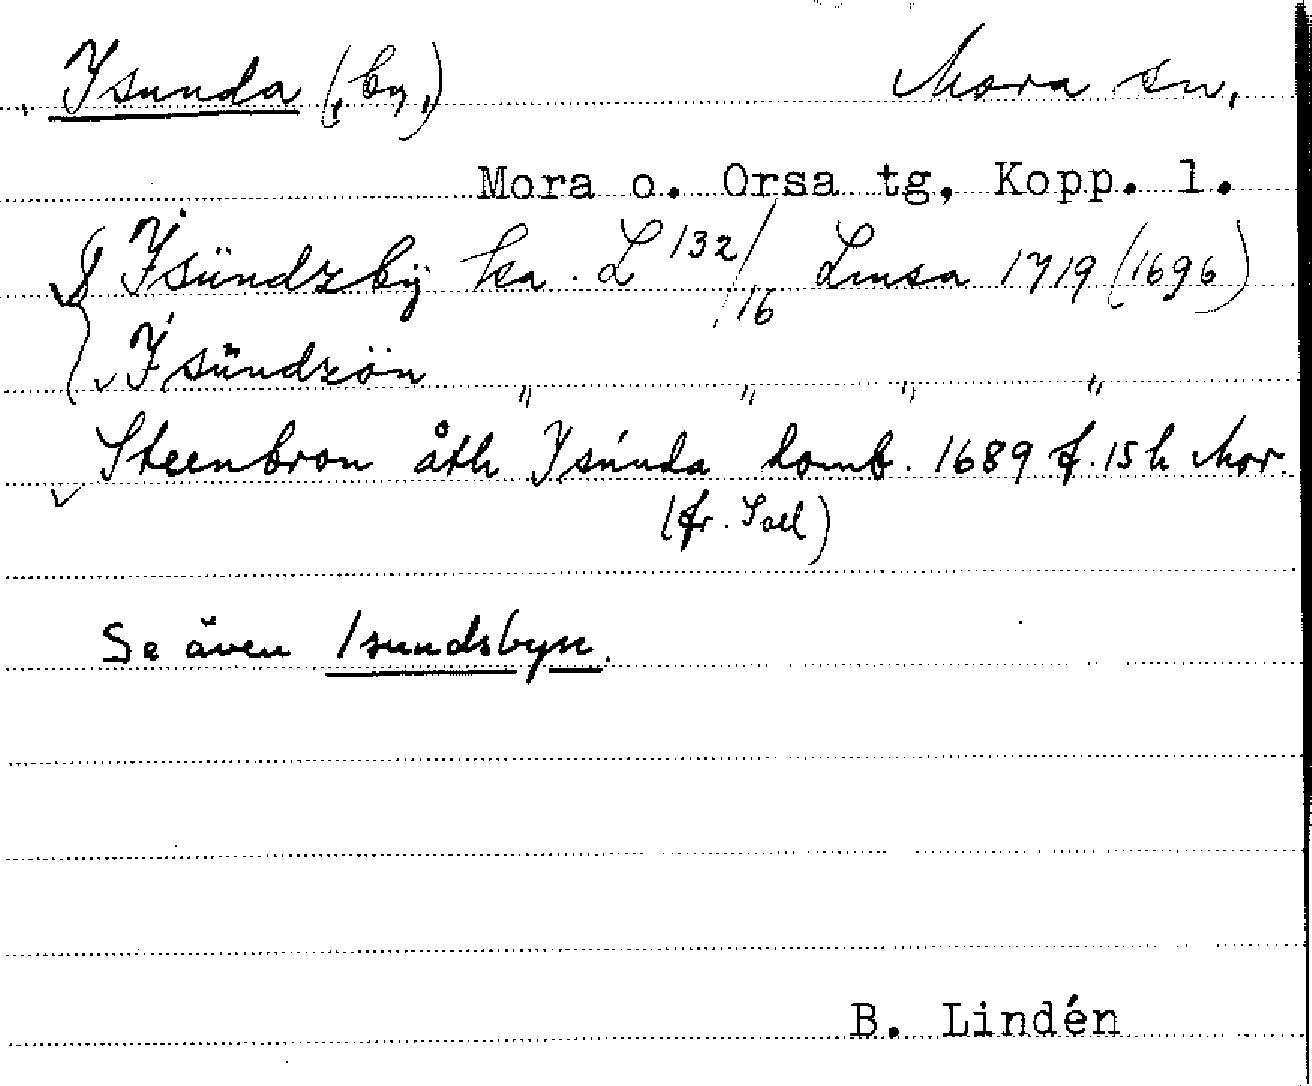 Isunda (, by,) Mora sn,
Mora o. Orsa tg, Kopp. l.
Ÿsündzbÿ ka. L 132/16 Lmsa 1719 (1696)
Ÿsündzön " " " "
Steenbron åth Isúnda domb. 1689 f. 15 h Mor.
(fr. Sael)
Se även Isundsbyn.
B. Lindén